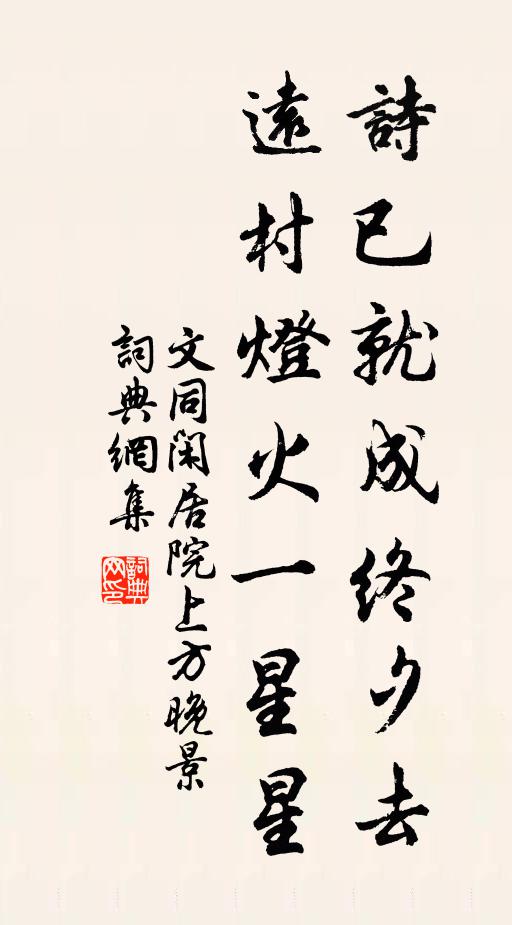 詩已就成終夕去
遠村燈火一星星
文同閑居院上方晚景
詞典網集
詞典網印